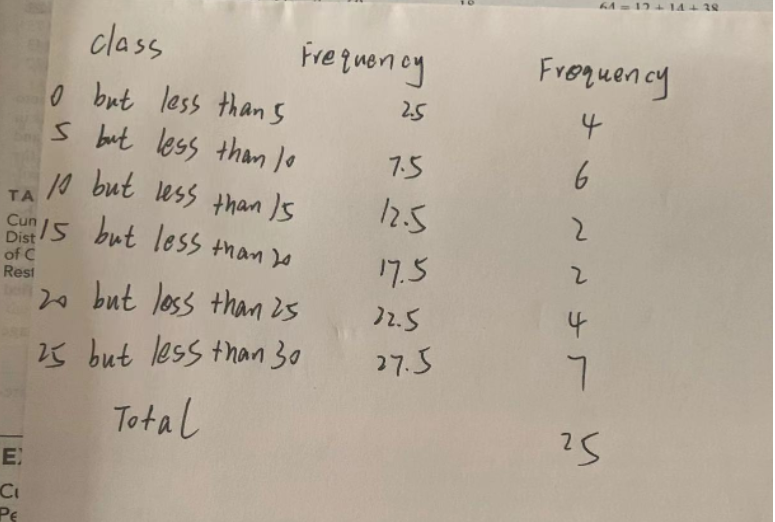 64 = 12 + 14 + 38
class Frequency Frequency
0 but less than 5 2.5 4
5 but less than 10 7.5 6
10 but less than 15 12.5 2
15 but less than 20 17.5 2
20 but less than 25 22.5 4
25 but less than 30 27.5 7
Total 25
TA
Cun
Dist
of C
Rest
E
Cu
Pe